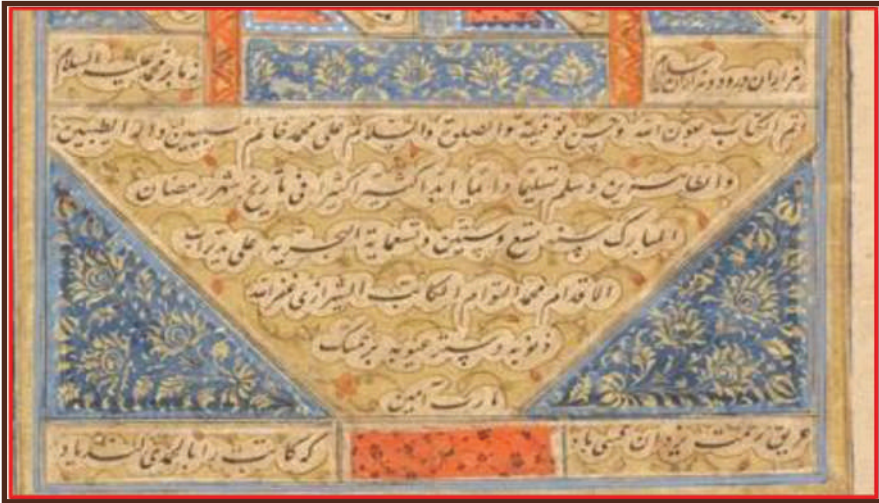 هزاران درود و هزاران سلام ز ما بر محمد علیه السلام
اتم الکتاب بعون الله وحسن توفیقه والصلوة والسلام علی محمد خاتم النبیین واله الطیبین
والطاهرین وسلم تسلیما دائما ابدا کثیرا کثیرا فی تاریخ شهر رمضان
المبارک سنه تسع وستین وتسعمایة الهجریه علی ید تراب
الاقدام محمد القوام الکاتب الشیرازی غفر الله
ذنوبه وستر عیوبه برحمتک
یا رب آمین
غریق رحمت یزدان کسی باد که کاتب را بالحمدی کند یاد